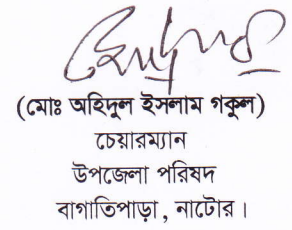 (মোঃ অহিদুল ইসলাম গকুল)
চেয়ারম্যান
উপজেলা পরিষদ
বাগাতিপাড়া, নাটোর।